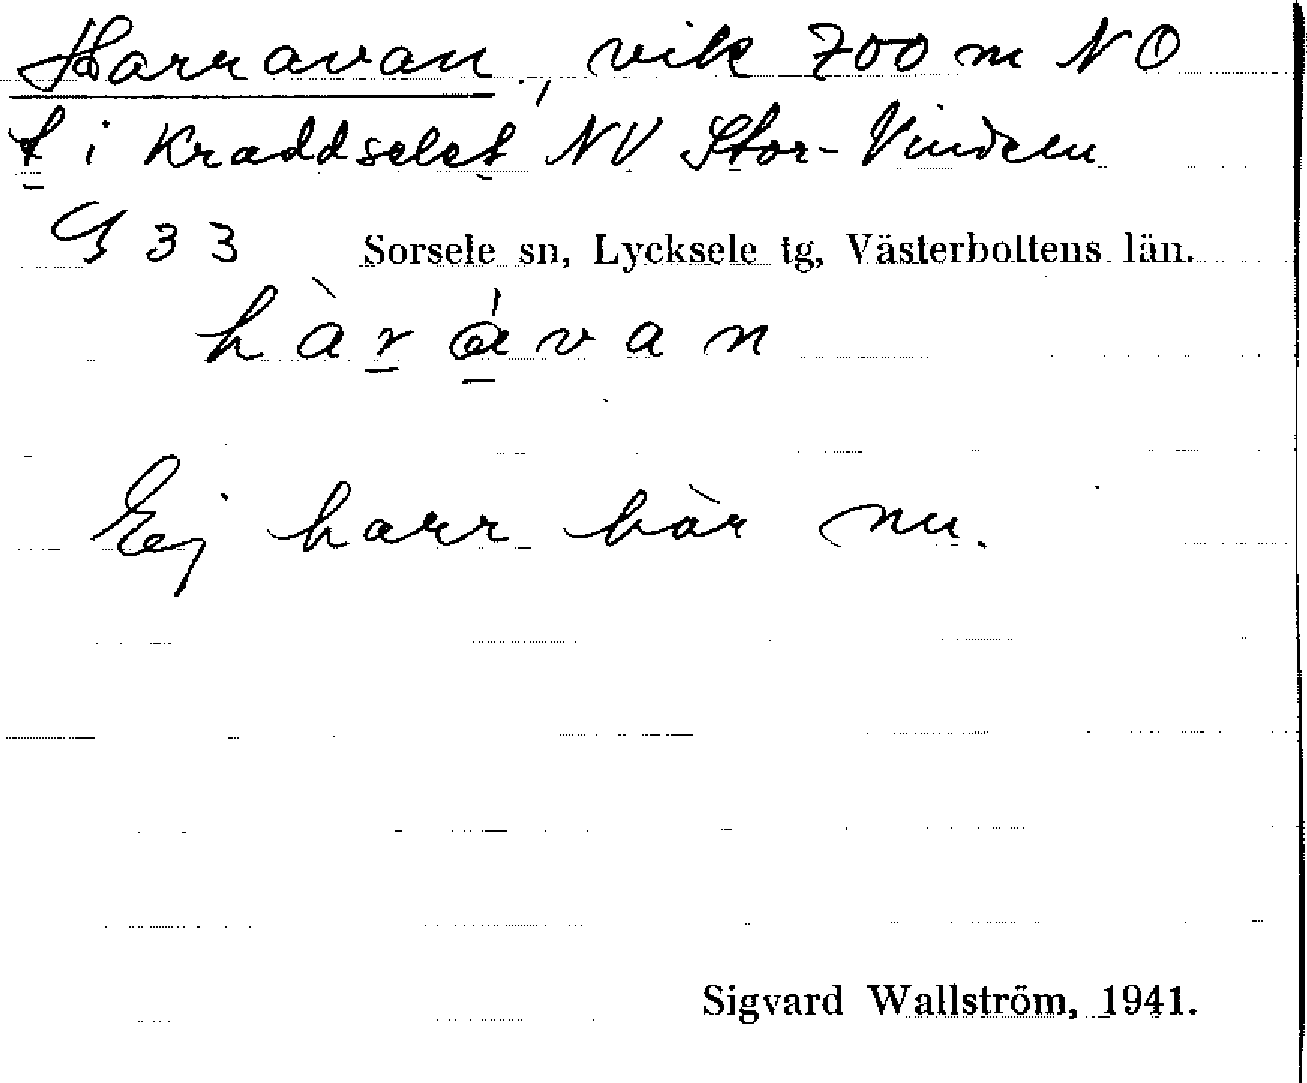 Harravan, vik 700 m NO
t i Kraddselet NV Stor-Vindeln
933 Sorsele sn, Lycksele tg, Västerbottens län.
hàrávan
Ej harr här nu.
Sigvard Wallström, 1941.